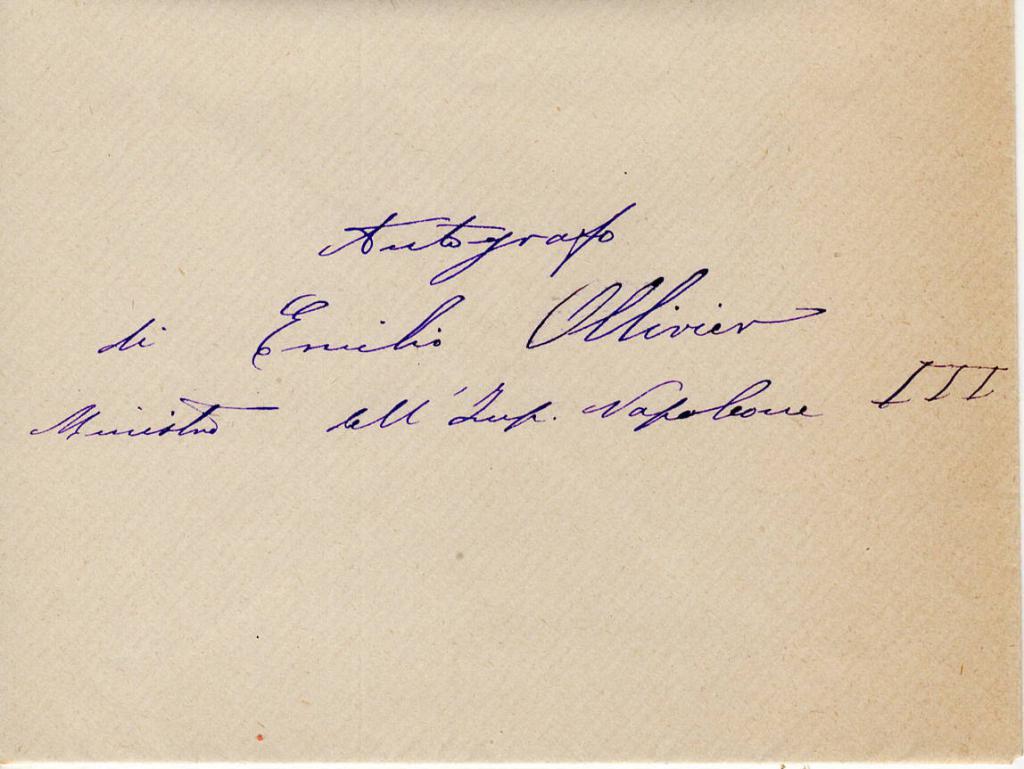 Autografo
di Emilio Ollivier
Ministro dell'Imp. Napoleone III